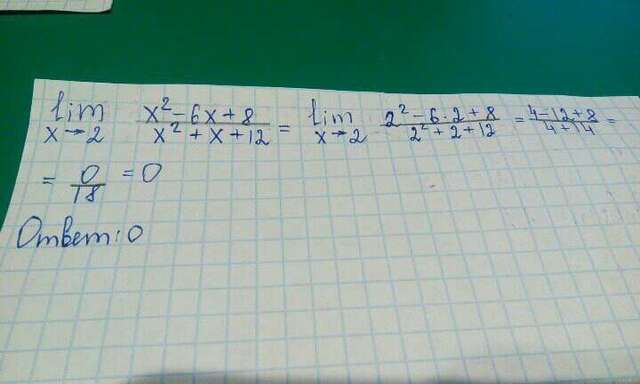 lim x→2 x²-6x+8 / x²+x+12 = lim x→2 2²-6·2+8 / 2²+2+12 = 4-12+8 / 4+14 =
= 0/18 = 0
Ответ: 0